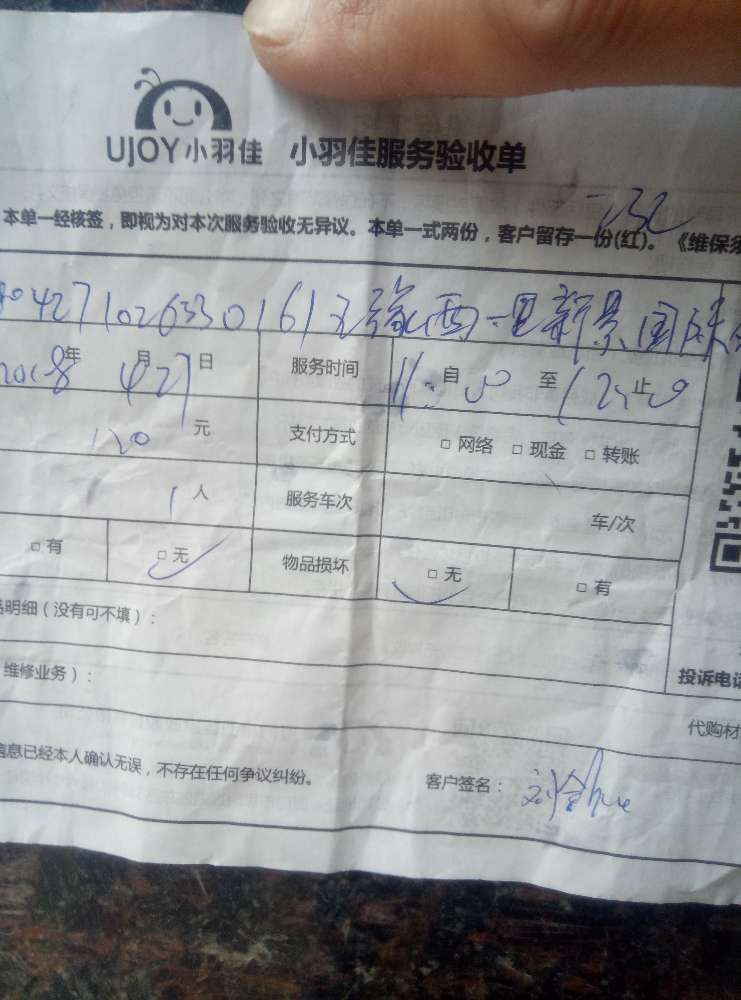 UJOY小羽佳 小羽佳服务验收单
本单一经核签，即视为对本次服务验收无异议。本单一式两份，客户留存一份(红)。《维保须
0427102633016 西 里新景国际
2018年 4月27日 服务时间 11:00自 至 12:00止
120元 支付方式 □ 网络 □ 现金 □ 转账
1人 服务车次 车/次
□ 有 □ 无 物品损坏 □ 无 □ 有
明细（没有可不填）：
投诉电话
维修业务）：
代购材
信息已经本人确认无误，不存在任何争议纠纷。 客户签名：刘